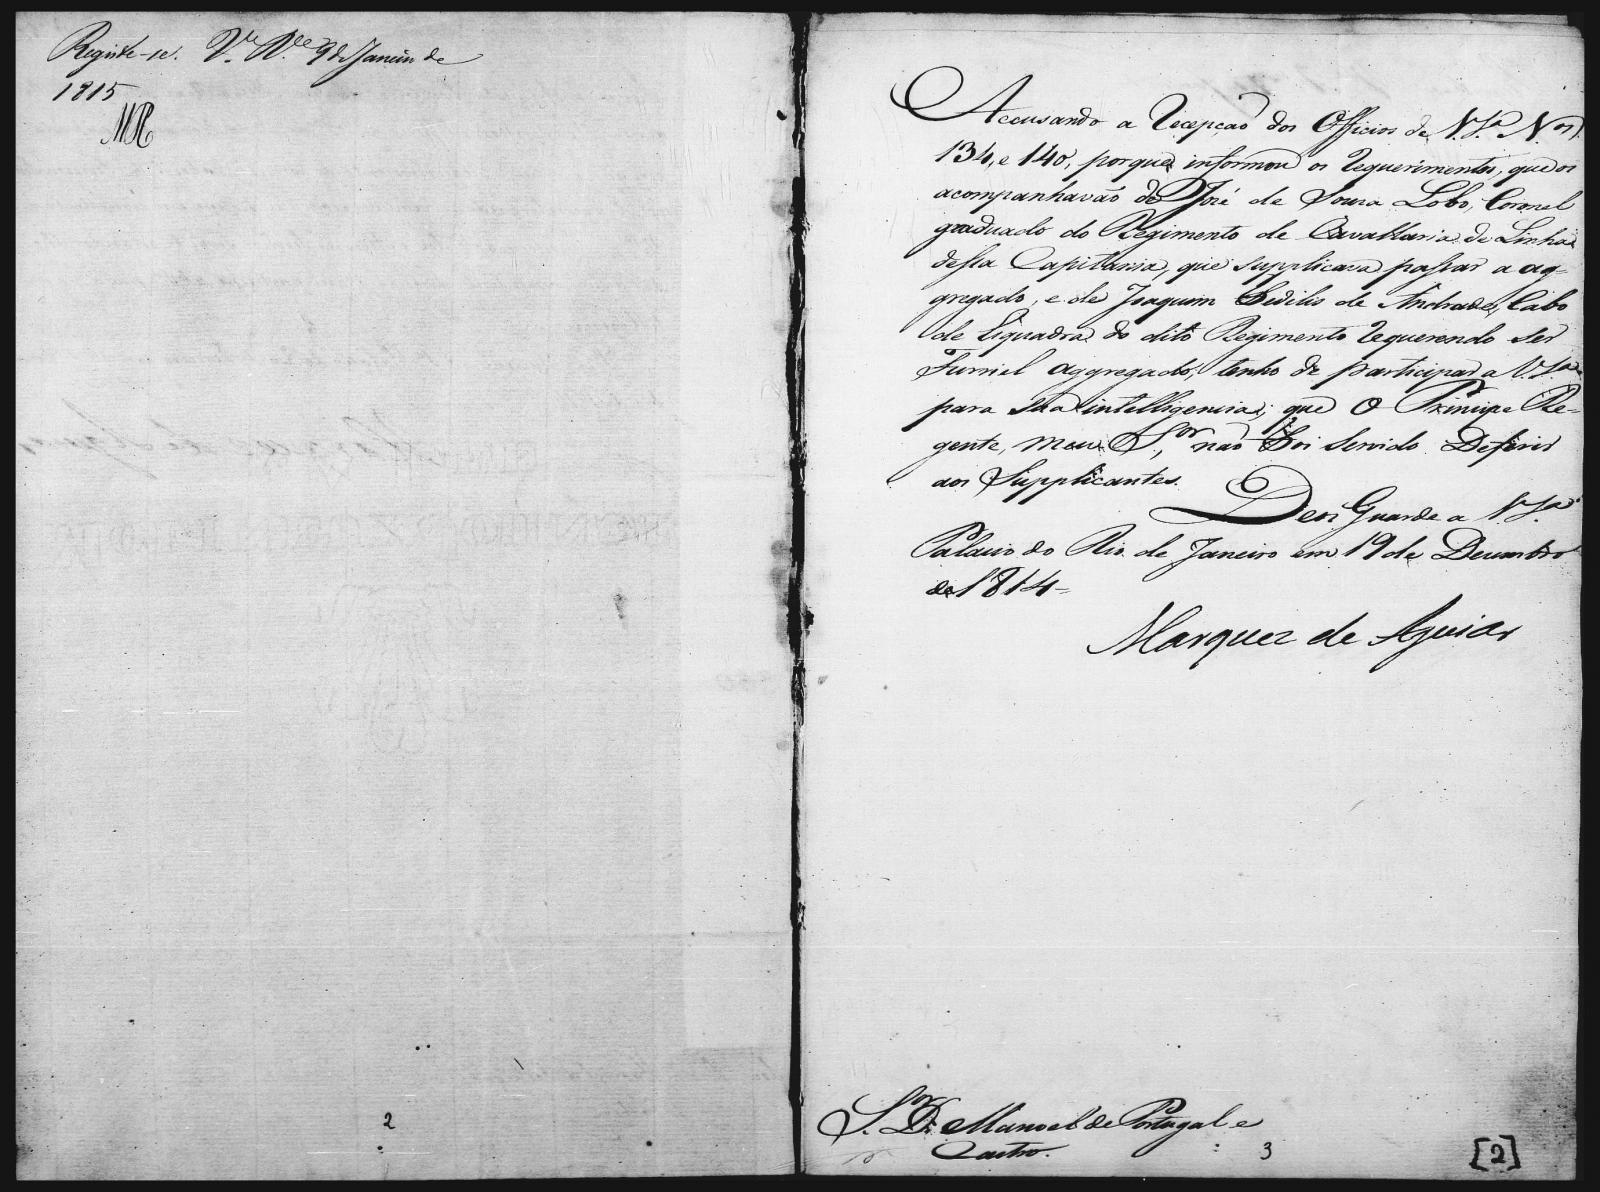 Registe-se. V.ª R.ª 9 de Janeiro de
1815
MR
2
Accusando a recepção dos Officios de V. S.ª N.os
134, e 140, porque informou os requerimentos, que os
acompanhavão de José de Souza Lobo, Coronel
graduado do Regimento de Cavallaria de Linha
desta Capitania, que supplicava passar a ag-
gregado, e de Joaquim de Andrade, Cabo
de Esquadra do dito Regimento requerendo ser
Furriel aggregado; tenho de participar a V. S.ª
para sua intelligencia, que O Principe Re-
gente, meu S.or, não Foi Servido Deferir
aos Supplicantes.
Deos Guarde a V. S.ª
Palacio do Rio de Janeiro em 19 de Dezembro
de 1814=
Marquez de Aguiar
S.or D. Manoel de Portugal e
Castro.
3
[2]